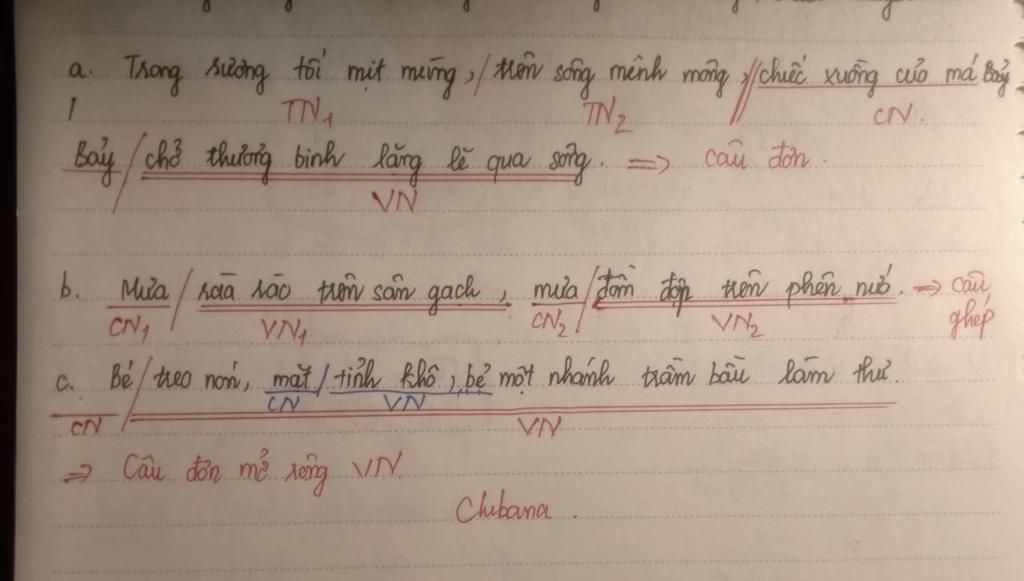 a. Trong sương tối mịt mùng, / trên sông mênh mông, // chiếc xuồng của má Bảy
TN1 TN2 CN.
Bảy / chở thương binh lặng lẽ qua sông. => câu đơn.
VN
b. Mưa / rào rào trên sân gạch, mưa / đồm độp trên phên nứa. => câu
CN1 VN1 CN2 VN2 ghép
c. Bé / treo nón, mặt / tỉnh khô, bẻ một nhánh trâm bầu làm thư.
CN VN
CN VN
=> Câu đơn mở rộng VN.
Chibana.